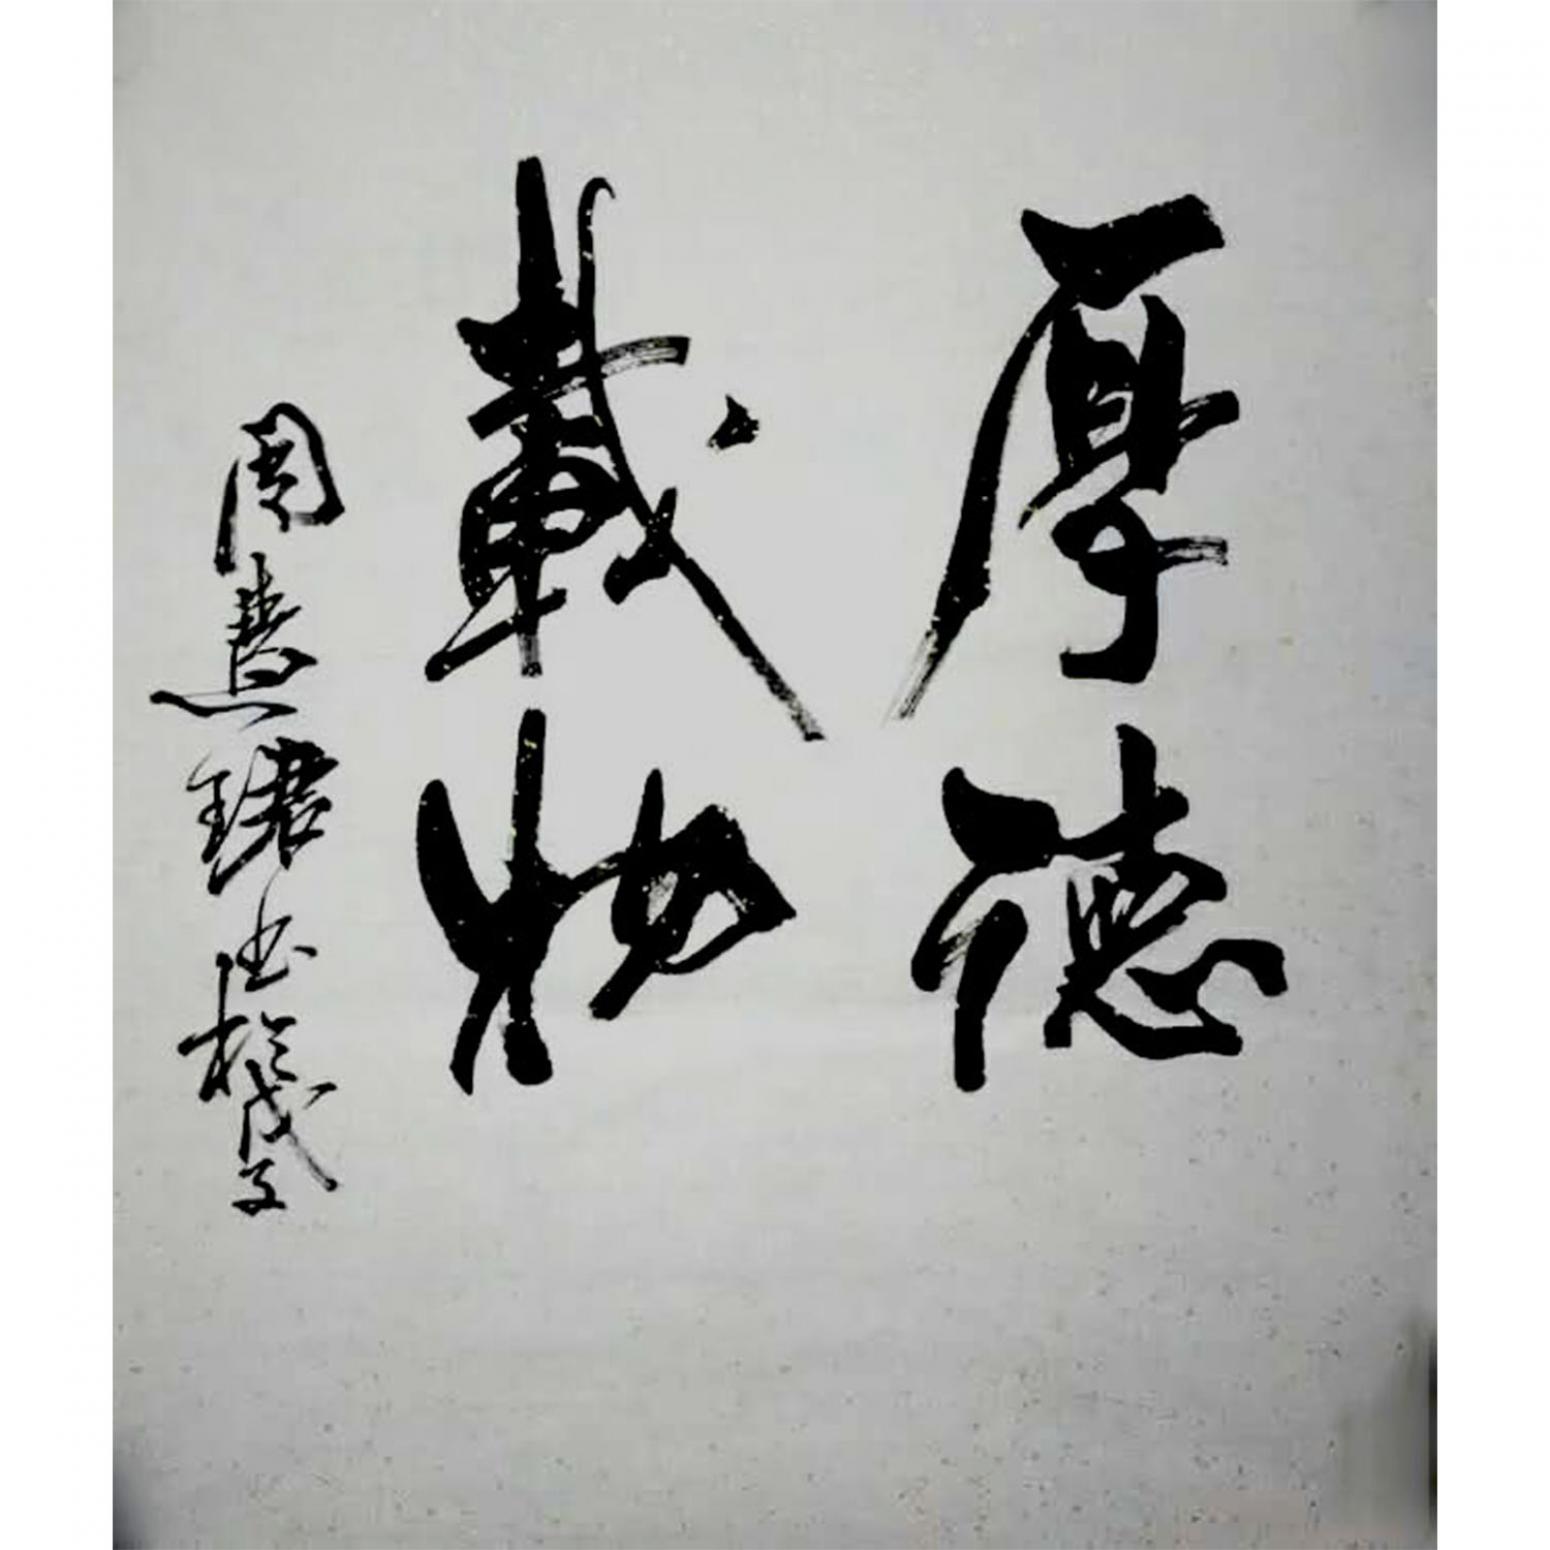 厚德
載物
周慧珺书於戊子